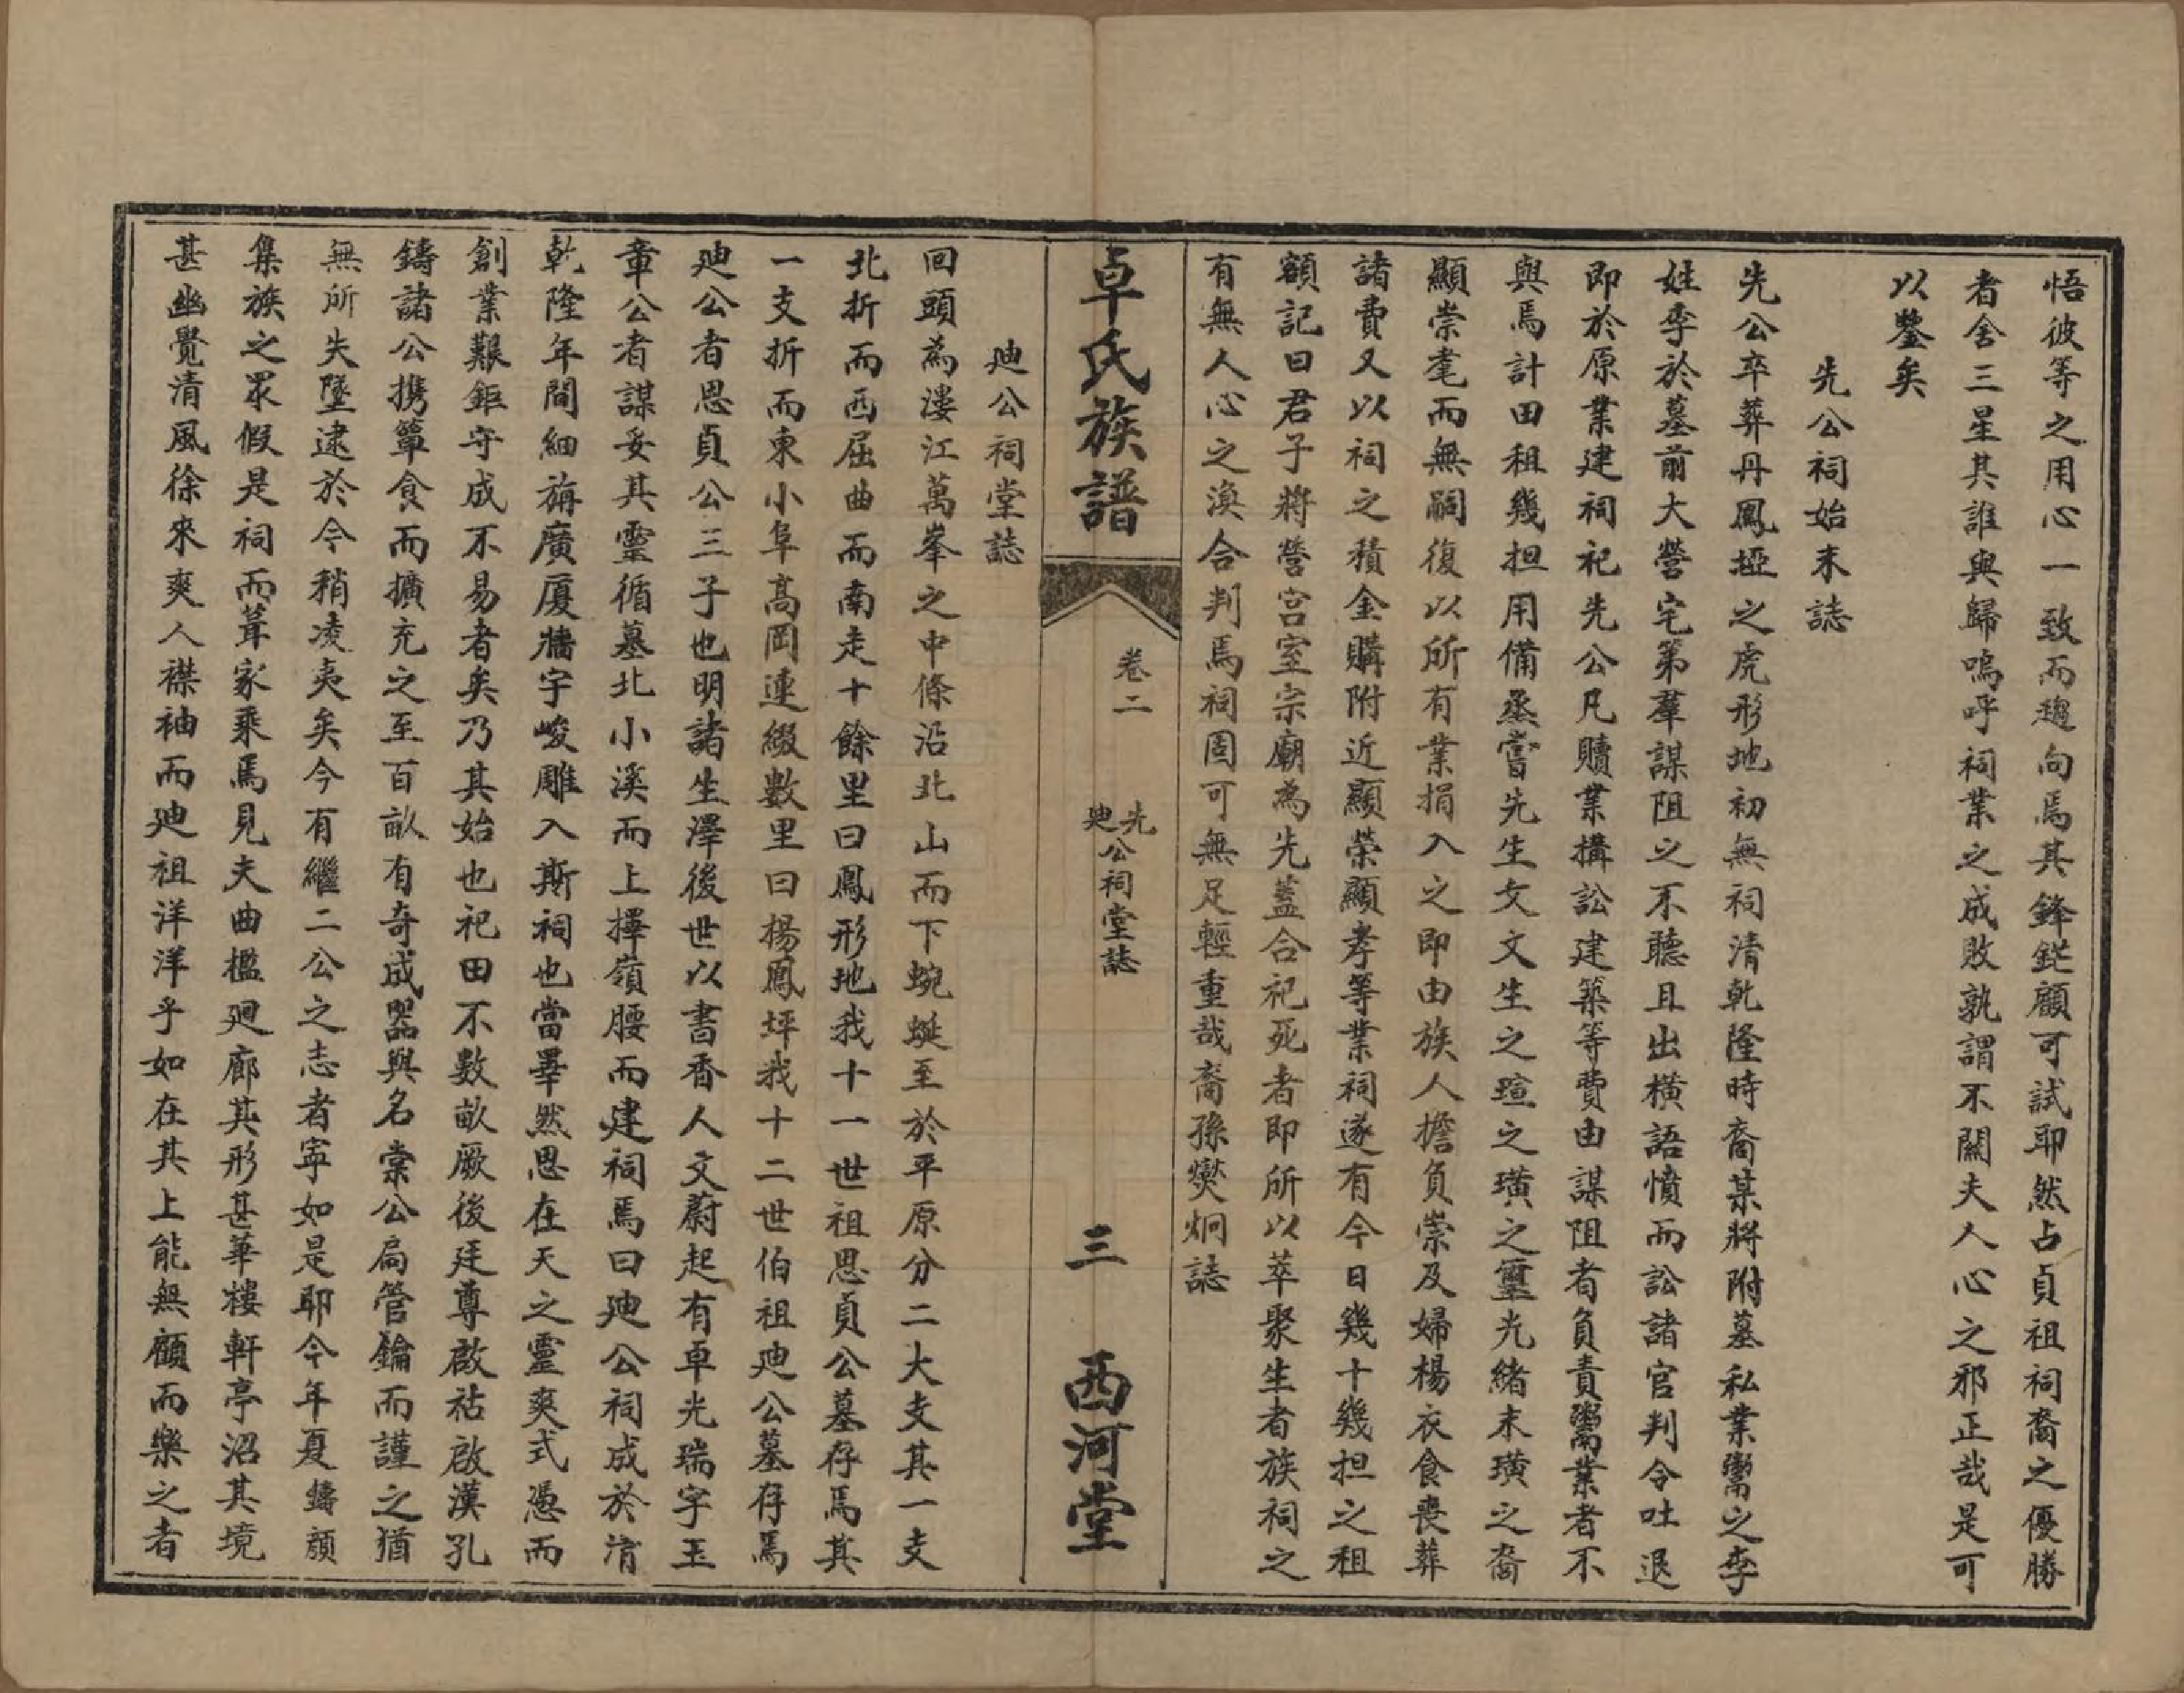 悟彼等之用心一致而趨向焉其鋒鋩顧可試耶然占貞祖祠裔之優勝
者舍三星其誰與歸嗚呼祠業之成敗孰謂不關夫人心之邪正哉是可
以鑒矣
先公祠始末誌
先公卒葬丹鳳埡之虎形地初無祠清乾隆時裔某將附墓私業鬻之李
姓李於墓前大營宅第羣謀阻之不聽且出橫語憤而訟諸官判令吐退
即於原業建祠祀先公凡贖業搆訟建築等費由謀阻者負責鬻業者不
與焉計田租幾担用備烝嘗先生文文生之瑄之璜之靈光緒末璜之裔
顯崇耄而無嗣復以所有業捐入之即由族人擔負崇及婦楊衣食喪葬
諸費又以祠之積金購附近顯榮顯孝等業祠遂有今日幾十幾担之租
額記曰君子將營宮室宗廟為先蓋合祀死者即所以萃聚生者族祠之
有無人心之渙合判焉祠固可無足輕重哉裔孫爕炯誌
卓氏族譜
卷二
先廸公祠堂誌
三
西河堂
廸公祠堂誌
回頭為漊江萬峯之中條沿北山而下蜿蜒至於平原分二大支其一支
北折而西屈曲而南走十餘里曰鳳形地我十一世祖思貞公墓存焉其
一支折而東小阜高岡連綴數里曰楊鳳坪我十二世伯祖廸公墓存焉
廸公者思貞公三子也明諸生澤後世以書香人文蔚起有卓光瑞字玉
章公者謀妥其靈循墓北小溪而上擇嶺腰而建祠焉曰廸公祠成於清
乾隆年間細旃廣厦牆宇峻雕入斯祠也當畢然思在天之靈爽式憑而
創業艱鉅守成不易者矣乃其始也祀田不數畝厥後廷尊啟祜啟漢孔
鑄諸公携簞食而擴充之至百畝有奇成器與名棠公扃管鑰而謹之猶
無所失墜逮於今稍凌夷矣今有繼二公之志者寧如是耶今年夏鑄顏
集族之眾假是祠而葺家乘焉見夫曲檻廻廊其形甚華樓軒亭沼其境
甚幽覺清風徐來爽人襟袖而廸祖洋洋乎如在其上能無顧而樂之者